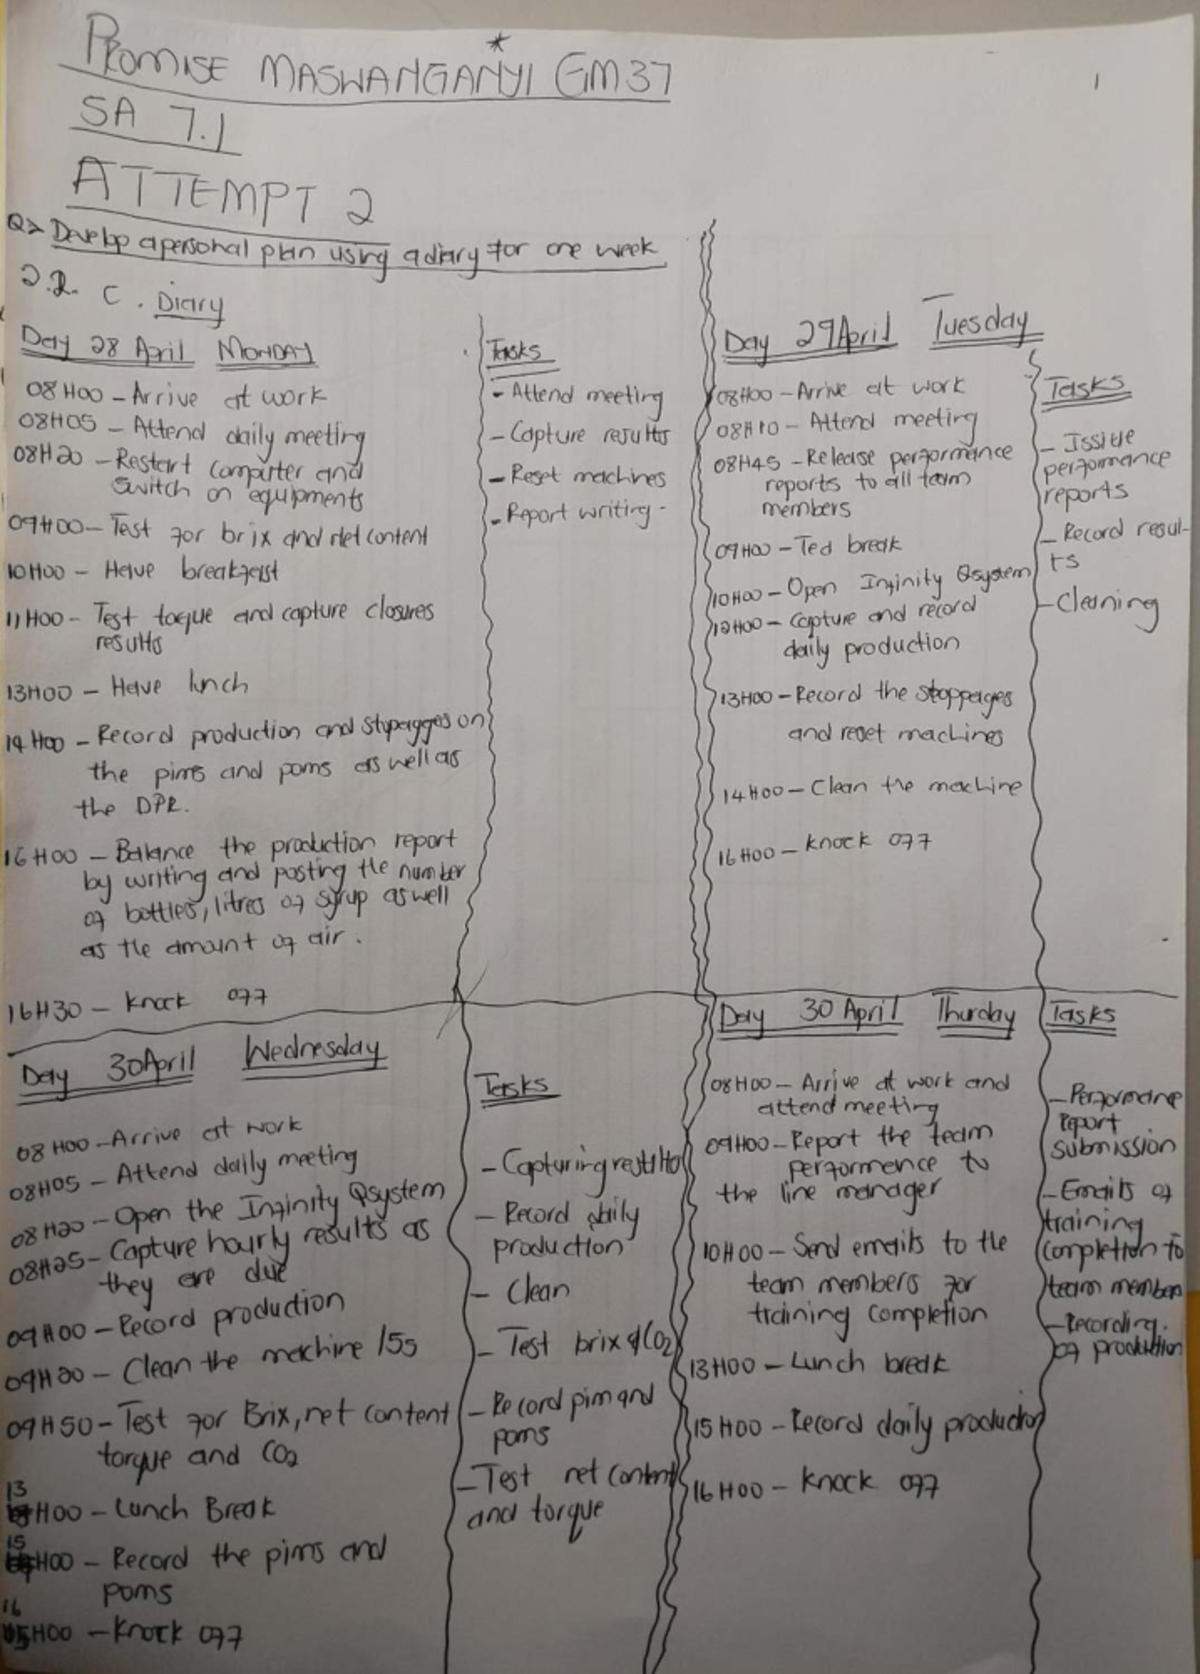 PROMISE MASWANGANYI GM37
1
SA 7.1
ATTEMPT 2
Q2> Develop a personal plan using a diary for one week
2.2. C. Diary
Day 28 April MONDAY
08H00 - Arrive at work
08H05 - Attend daily meeting
08H20 - Restart computer and
switch on equipments
09H00 - Test for brix and net content
10H00 - Have breakfast
11H00 - Test torque and capture closures
results
13H00 - Have lunch
14H00 - Record production and stopagges on
the pims and poms as well as
the DPR.
16H00 - Balance the production report
by writing and posting the number
of bottles, litres of syrup as well
as the amount of air.
16H30 - Knock off
Tasks
- Attend meeting
- Capture results
- Reset machines
- Report writing -
Day 29 April Tuesday
08H00 - Arrive at work
08H10 - Attend meeting
08H45 - Release performance
reports to all team
members
09H00 - Tea break
10H00 - Open Infinity Qsystem
12H00 - Capture and record
daily production
13H00 - Record the stoppages
and reset machines
14H00 - Clean the machine
16H00 - Knock off
Tasks
- Issue
performance
reports
- Record resul-
ts
- Cleaning
Day 30 April Wednesday
08H00 - Arrive at work
08H05 - Attend daily meeting
08H20 - Open the Infinity Qsystem
08H25 - Capture hourly results as
they are due
09H00 - Record production
09H20 - Clean the machine /5s
09H50 - Test for Brix, net content
torque and CO2
13H00 - Lunch Break
15H00 - Record the pims and
poms
16H00 - Knock off
Tasks
- Capturing results
- Record daily
production
- Clean
- Test brix & CO2
- Record pim and
poms
- Test net content
and torque
Day 30 April Thurday
08H00 - Arrive at work and
attend meeting
09H00 - Report the team
performence to
the line manager
10H00 - Send emails to the
team members for
training completion
13H00 - Lunch break
15H00 - Record daily production
16H00 - Knock off
Tasks
- Performane
report
submission
- Emails of
training
completion to
team member
- Recording.
of production